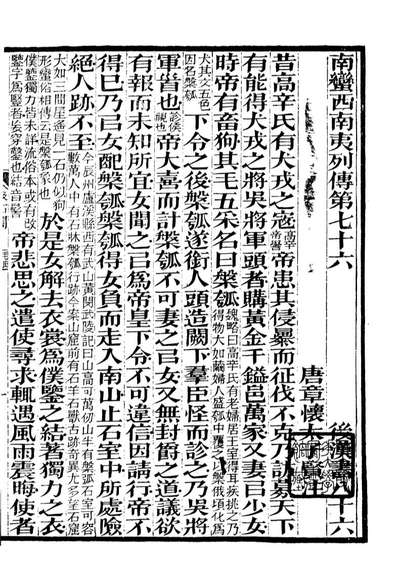 南蠻西南夷列傳第七十六　後漢書八十六
唐章懷太子賢注
昔高辛氏有犬戎之寇高辛帝嚳帝患其侵暴而征伐不克乃訪募天下
有能得犬戎之將吳將軍頭者購黃金千鎰邑萬家又妻㠯少女
時帝有畜狗其毛五采名曰槃瓠魏略曰高辛氏有老婦居王室得耳疾挑之乃得物大如繭婦人盛瓠中覆之以槃俄頃化爲
犬其文五色因名槃瓠下令之後槃瓠遂銜人頭造闕下羣臣怪而診之乃吳將
軍首也診候視也帝大喜而計槃瓠不可妻之㠯女又無封爵之道議欲
有報而未知所宜女聞之㠯爲帝皇下令不可違信因請行帝不
得已乃㠯女配槃瓠槃瓠得女負而走入南山止石室中所處險
絕人跡不至今辰州盧溪縣西有武山黃閔武陵記曰山高可萬仞山半有槃瓠石室可容數萬人中有石牀槃瓠行跡今案山窟前有石羊石獸古跡奇異尤多望石窟
大如三間屋遙見一石仍似狗形蠻俗相傳云是槃瓠像也於是女解去衣裳爲僕鑒之結著獨力之衣
僕鑒獨力皆未詳流俗本或有改鑒字爲豎者妄穿鑿也結音髻帝悲思之遣使尋求輒遇風雨震晦使者